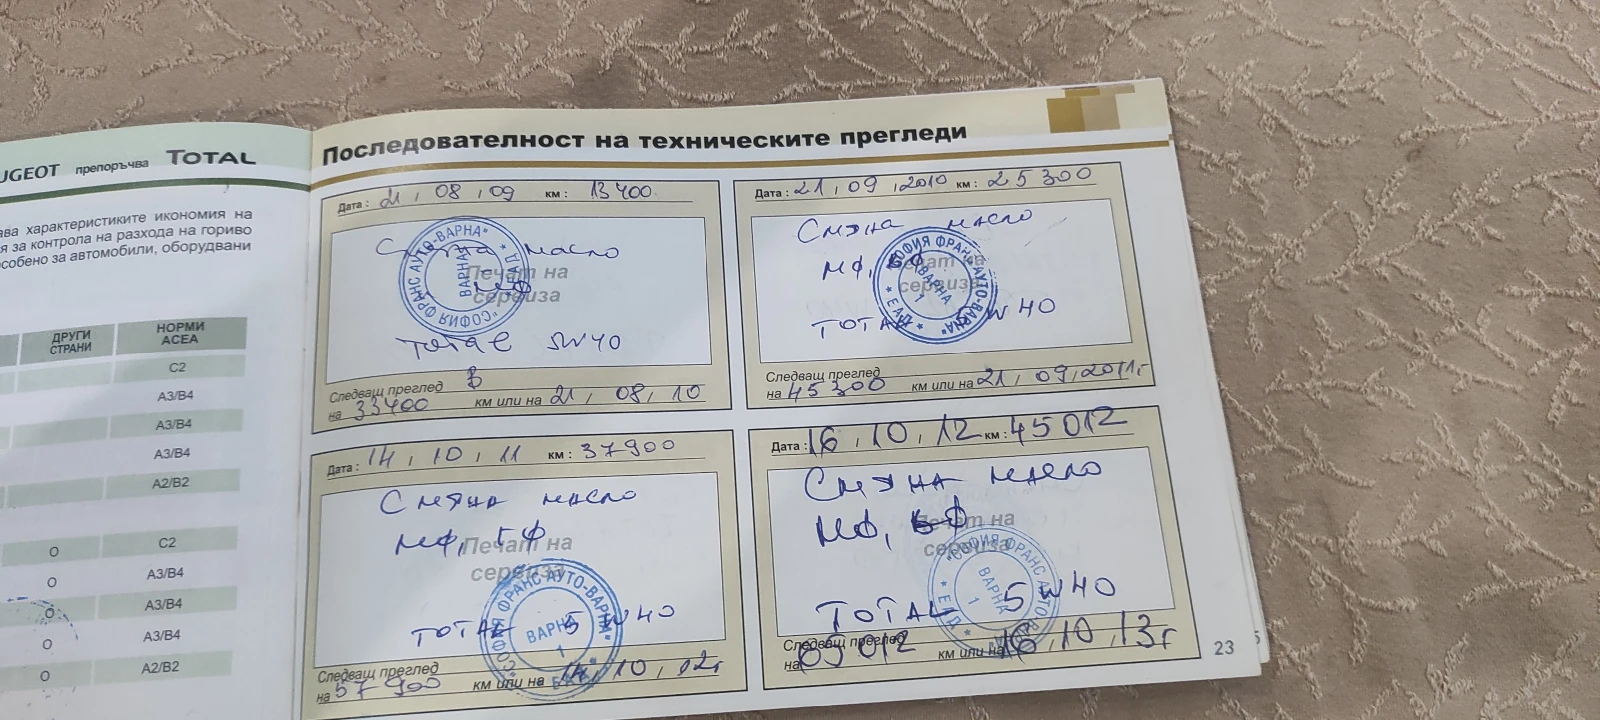 UGEOT препоръчва TOTAL
ава характеристиките икономия на
я за контрола на разхода на гориво
собено за автомобили, оборудвани
ДРУГИ СТРАНИ НОРМИ ACEA
C2
A3/B4
A3/B4
A3/B4
A2/B2
O C2
O A3/B4
O A3/B4
O A3/B4
O A2/B2
Последователност на техническите прегледи
Дата: 21, 08, 09 км: 13400
Смяна масло
Печат на
МФ
сервиза
"СОФИЯ ФРАНС АУТО-ВАРНА" ЕАД
ВАРНА
1
Total 5W40
Следващ преглед
на 33400 км или на 21, 08, 10
Дата: 21, 09, 2010 км: 25300
Смяна масло
МФ,
Печат на
сервиза
"СОФИЯ ФРАНС АУТО-ВАРНА" ЕАД
ВАРНА
1
TOTAL 5W40
Следващ преглед
на 45300 км или на 21, 09, 2011г.
Дата: 14, 10, 11 км: 37900
Смяна масло
МФ, ГФ
Печат на
сервиза
"СОФИЯ ФРАНС АУТО-ВАРНА" ЕАД
ВАРНА
1
TOTAL 5W40
Следващ преглед
на 57900 км или на 14, 10, 12г
Дата: 16, 10, 12 км: 45012
Смяна масло
МФ,
Печат на
сервиза
"СОФИЯ ФРАНС АУТО-ВАРНА" ЕАД
ВАРНА
1
TOTAL 5W40
Следващ преглед
на 65012 км или на 16, 10, 13г
23